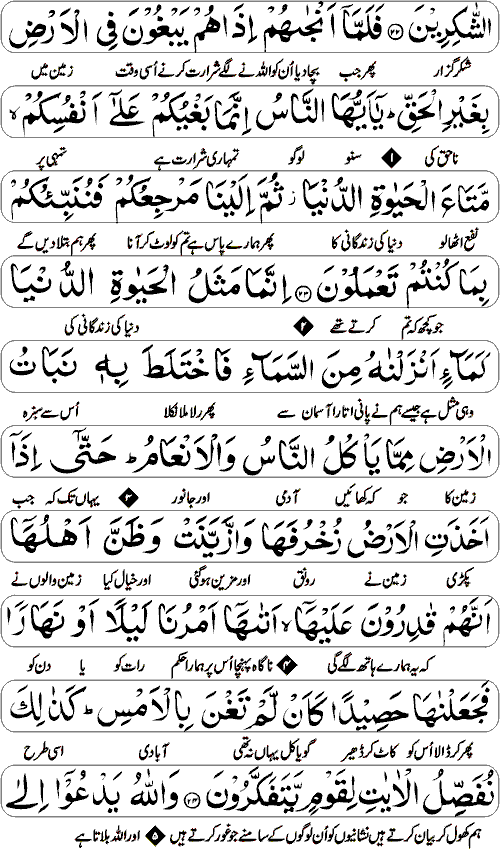 الشّٰكِرِيْنَ ﴿۲۲﴾ فَلَمَّاۤ اَنْجٰىهُمْ اِذَا هُمْ يَبْغُوْنَ فِى الْاَرْضِ
شکر گزار پھر جب بچا دیا اُن کو اللہ نے لگے شرارت کرنے اُسی وقت زمین میں
بِغَيْرِ الْحَقِّ ؕ يٰۤاَيُّهَا النَّاسُ اِنَّمَا بَغْيُكُمْ عَلٰٓى اَنْفُسِكُمْ ۙ
ناحق کی ۱ سنو لوگو تمہاری شرارت ہے تمہی پر
مَّتَاعَ الْحَيٰوةِ الدُّنْيَا ؗ ثُمَّ اِلَيْنَا مَرْجِعُكُمْ فَنُنَبِّئُكُمْ
نفع اٹھا لو دنیا کی زندگانی کا پھر ہمارے پاس ہے تم کو لوٹ کر آنا پھر ہم بتلا دیں گے
بِمَا كُنْتُمْ تَعْمَلُوْنَ ﴿۲۳﴾ اِنَّمَا مَثَلُ الْحَيٰوةِ الدُّنْيَا
جو کچھ کہ تم کرتے تھے ۲ دنیا کی زندگانی کی
كَمَآءٍ اَنْزَلْنٰهُ مِنَ السَّمَآءِ فَاخْتَلَطَ بِهٖ نَبَاتُ
وہی مثل ہے جیسے ہم نے پانی اتارا آسمان سے پھر رلا ملا نکلا اُس سے سبزہ
الْاَرْضِ مِمَّا يَاْكُلُ النَّاسُ وَالْاَنْعَامُ ؕ حَتّٰۤى اِذَاۤ
زمین کا جو کہ کھائیں آدمی اور جانور ۳ یہاں تک کہ جب
اَخَذَتِ الْاَرْضُ زُخْرُفَهَا وَازَّيَّنَتْ وَظَنَّ اَهْلُهَاۤ
پکڑی زمین نے رونق اور مزین ہو گئی اور خیال کیا زمین والوں نے
اَنَّهُمْ قٰدِرُوْنَ عَلَيْهَاۤ ۙ اَتٰىهَاۤ اَمْرُنَا لَيْلًا اَوْ نَهَارًا
کہ یہ ہمارے ہاتھ لگے گی ۴ ناگاہ پہنچا اُس پر ہمارا حکم رات کو یا دن کو
فَجَعَلْنٰهَا حَصِيْدًا كَاَنْ لَّمْ تَغْنَ بِالْاَمْسِ ؕ كَذٰلِكَ
پھر کر ڈالا اُس کو کاٹ کر ڈھیر گویا کل یہاں نہ تھی آبادی اسی طرح
نُفَصِّلُ الْاٰيٰتِ لِقَوْمٍ يَّتَفَكَّرُوْنَ ﴿۲۴﴾ وَاللّٰهُ يَدْعُوْۤا اِلٰى
ہم کھول کر بیان کرتے ہیں نشانیوں کو اُن لوگوں کے سامنے جو غور کرتے ہیں ۵ اور اللہ بلاتا ہے